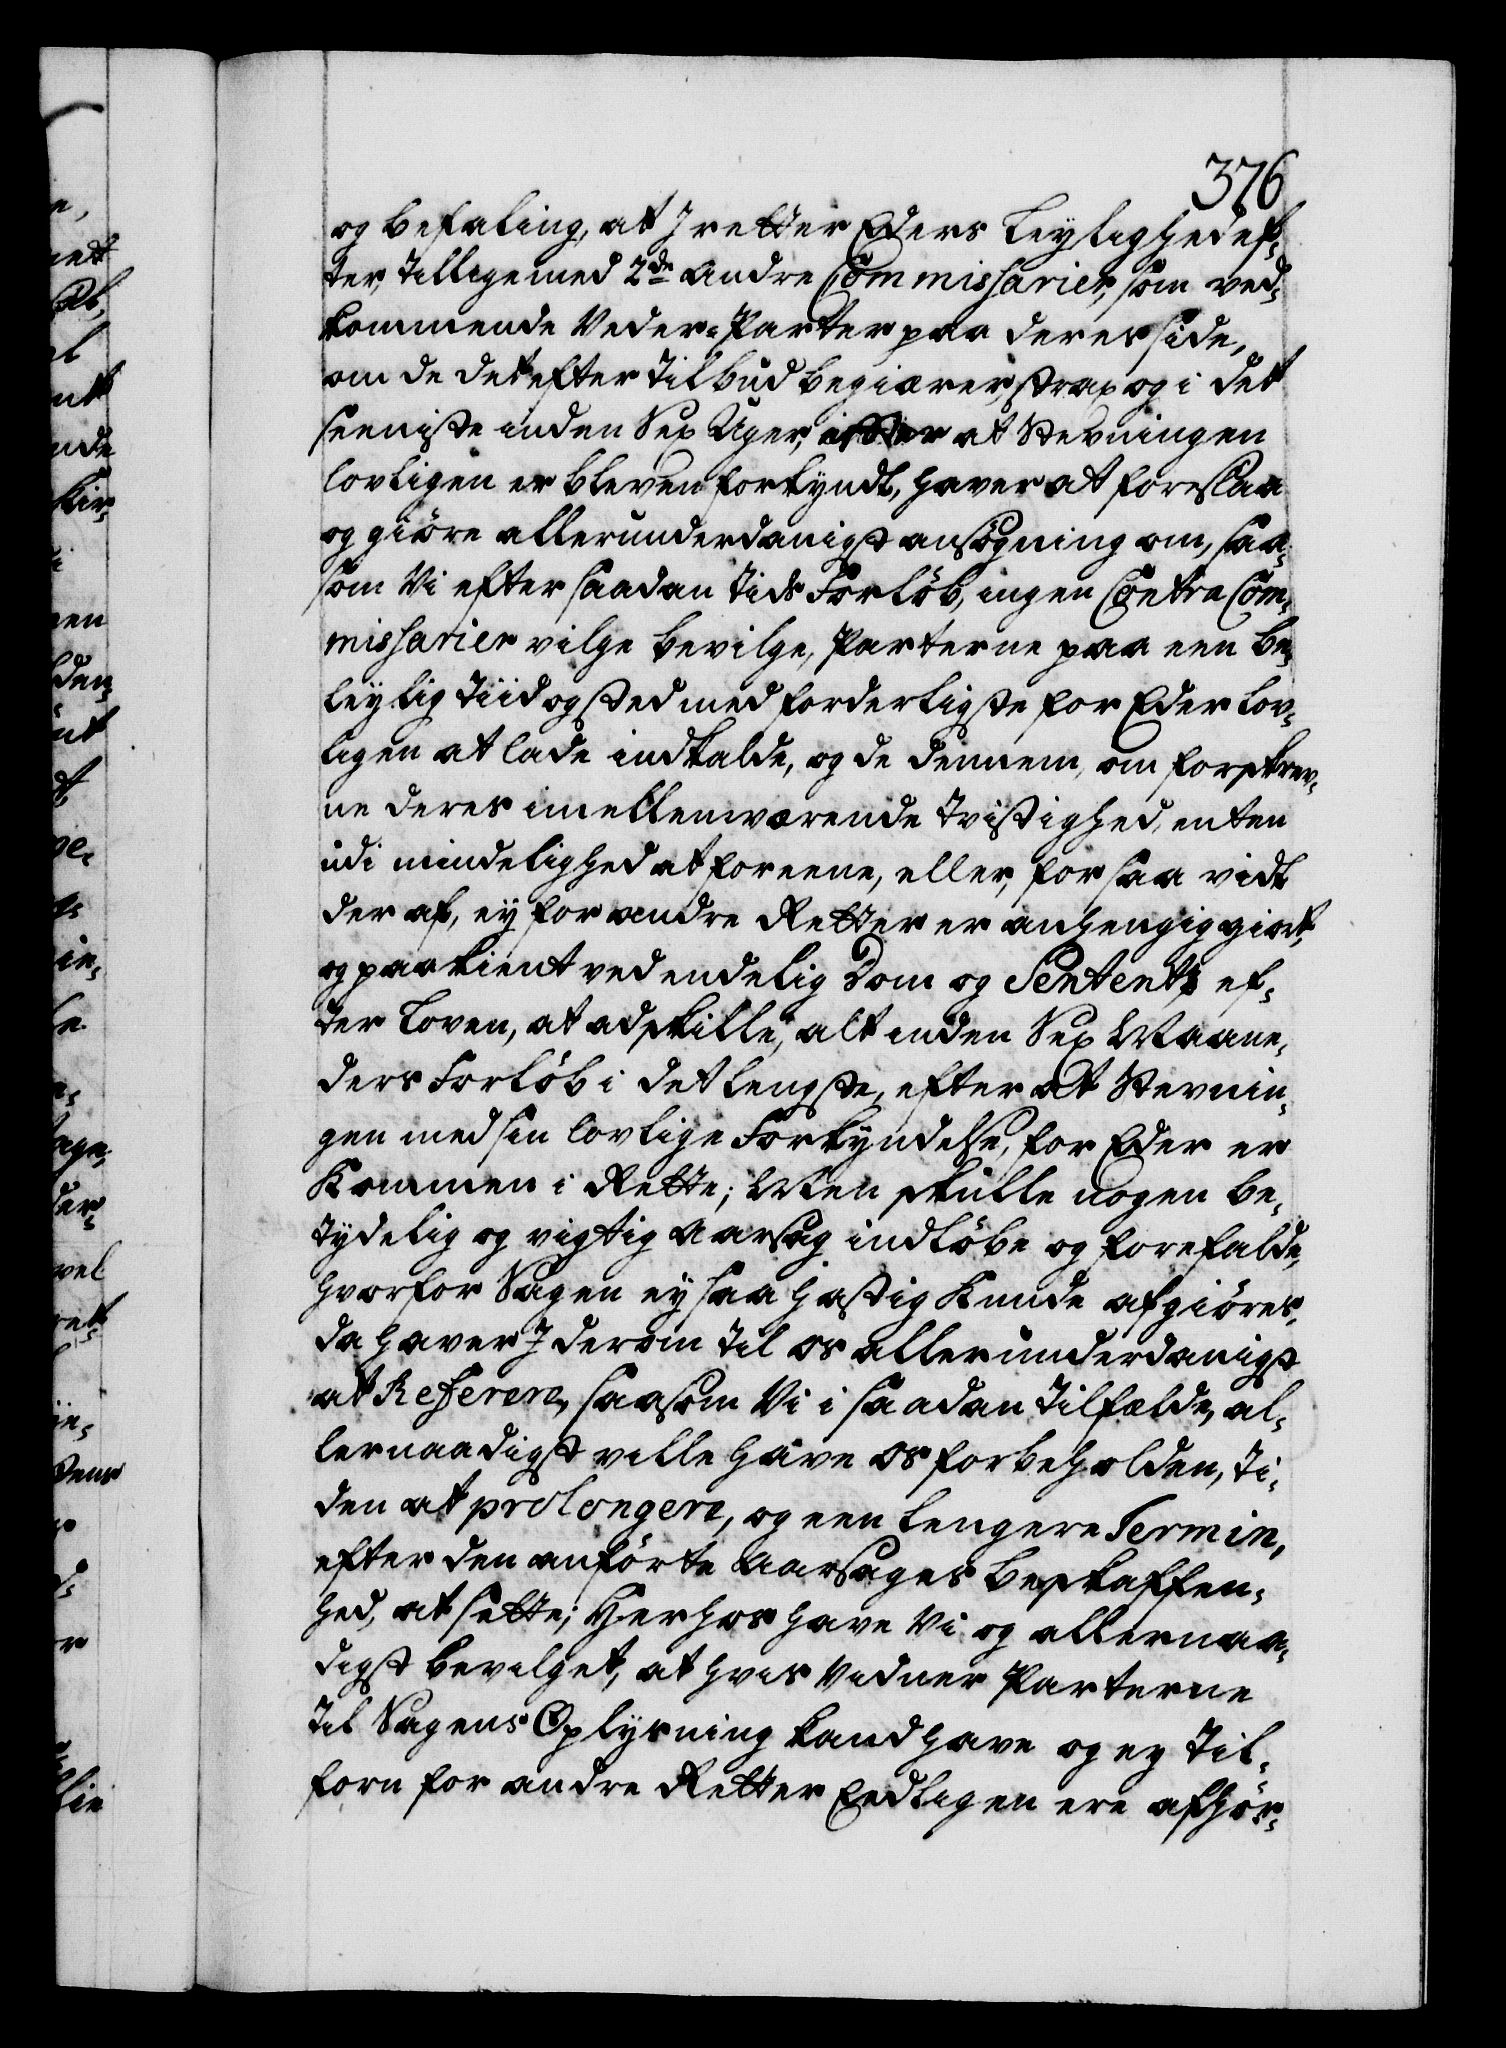 376
og befaling, at I retter Eders Leylighed ef-
ter, tilligemed 2de andre Commissarier, som ved-
kommende Veder-Parter paa deres side,
om de det efter tilbud begiærer, strax og i det
seeniste inden Sex Uger, efter at Stevningen
lovligen er bleven forkyndt, haver at foreslaa
og giöre allerunderdanigst ansögning om, saa-
som Vi efter saadan tids Forlöb, ingen Contra Com-
missarier vilge bevilge, Parterne paa een be-
leylig tiid og sted med forderligste for Eder lov-
ligen at lade indkalde, og de dennem, om forskrev-
ne deres imellemværende Tvistighed, enten
udi mindelighed at foreene, eller, for saa vidt
der af, ey for andre Retter er anhengiggiort,
og paakient ved endelig Dom og Sententz ef-
ter Loven, at adskille, alt inden Sex Maane-
ders Forlöb i det lengste, efter at Stevnin-
gen med sin lovlige Forkyndelse, for Eder er
Kommen i Rette; Men skulle nogen be-
tydelig og vigtig Aarsag indlöbe og forefalde,
hvorfor Sagen ey saa hastig Kunde afgiöres,
da haver I derom til os allerunderdanigst
at Referere, saasom Vi i saadan tilfælde, al-
lernaadigst ville have os forbeholden, ti-
den at prolongere, og een lengere Termin,
efter den anförte Aarsages beskaffen-
hed, at sette; Herhos have Vi og allernaa-
digst bevilget, at hvis Vidner Parterne
til Sagens Oplysning kand have og ey til-
forn for andre Retter Eedligen ere afhör-